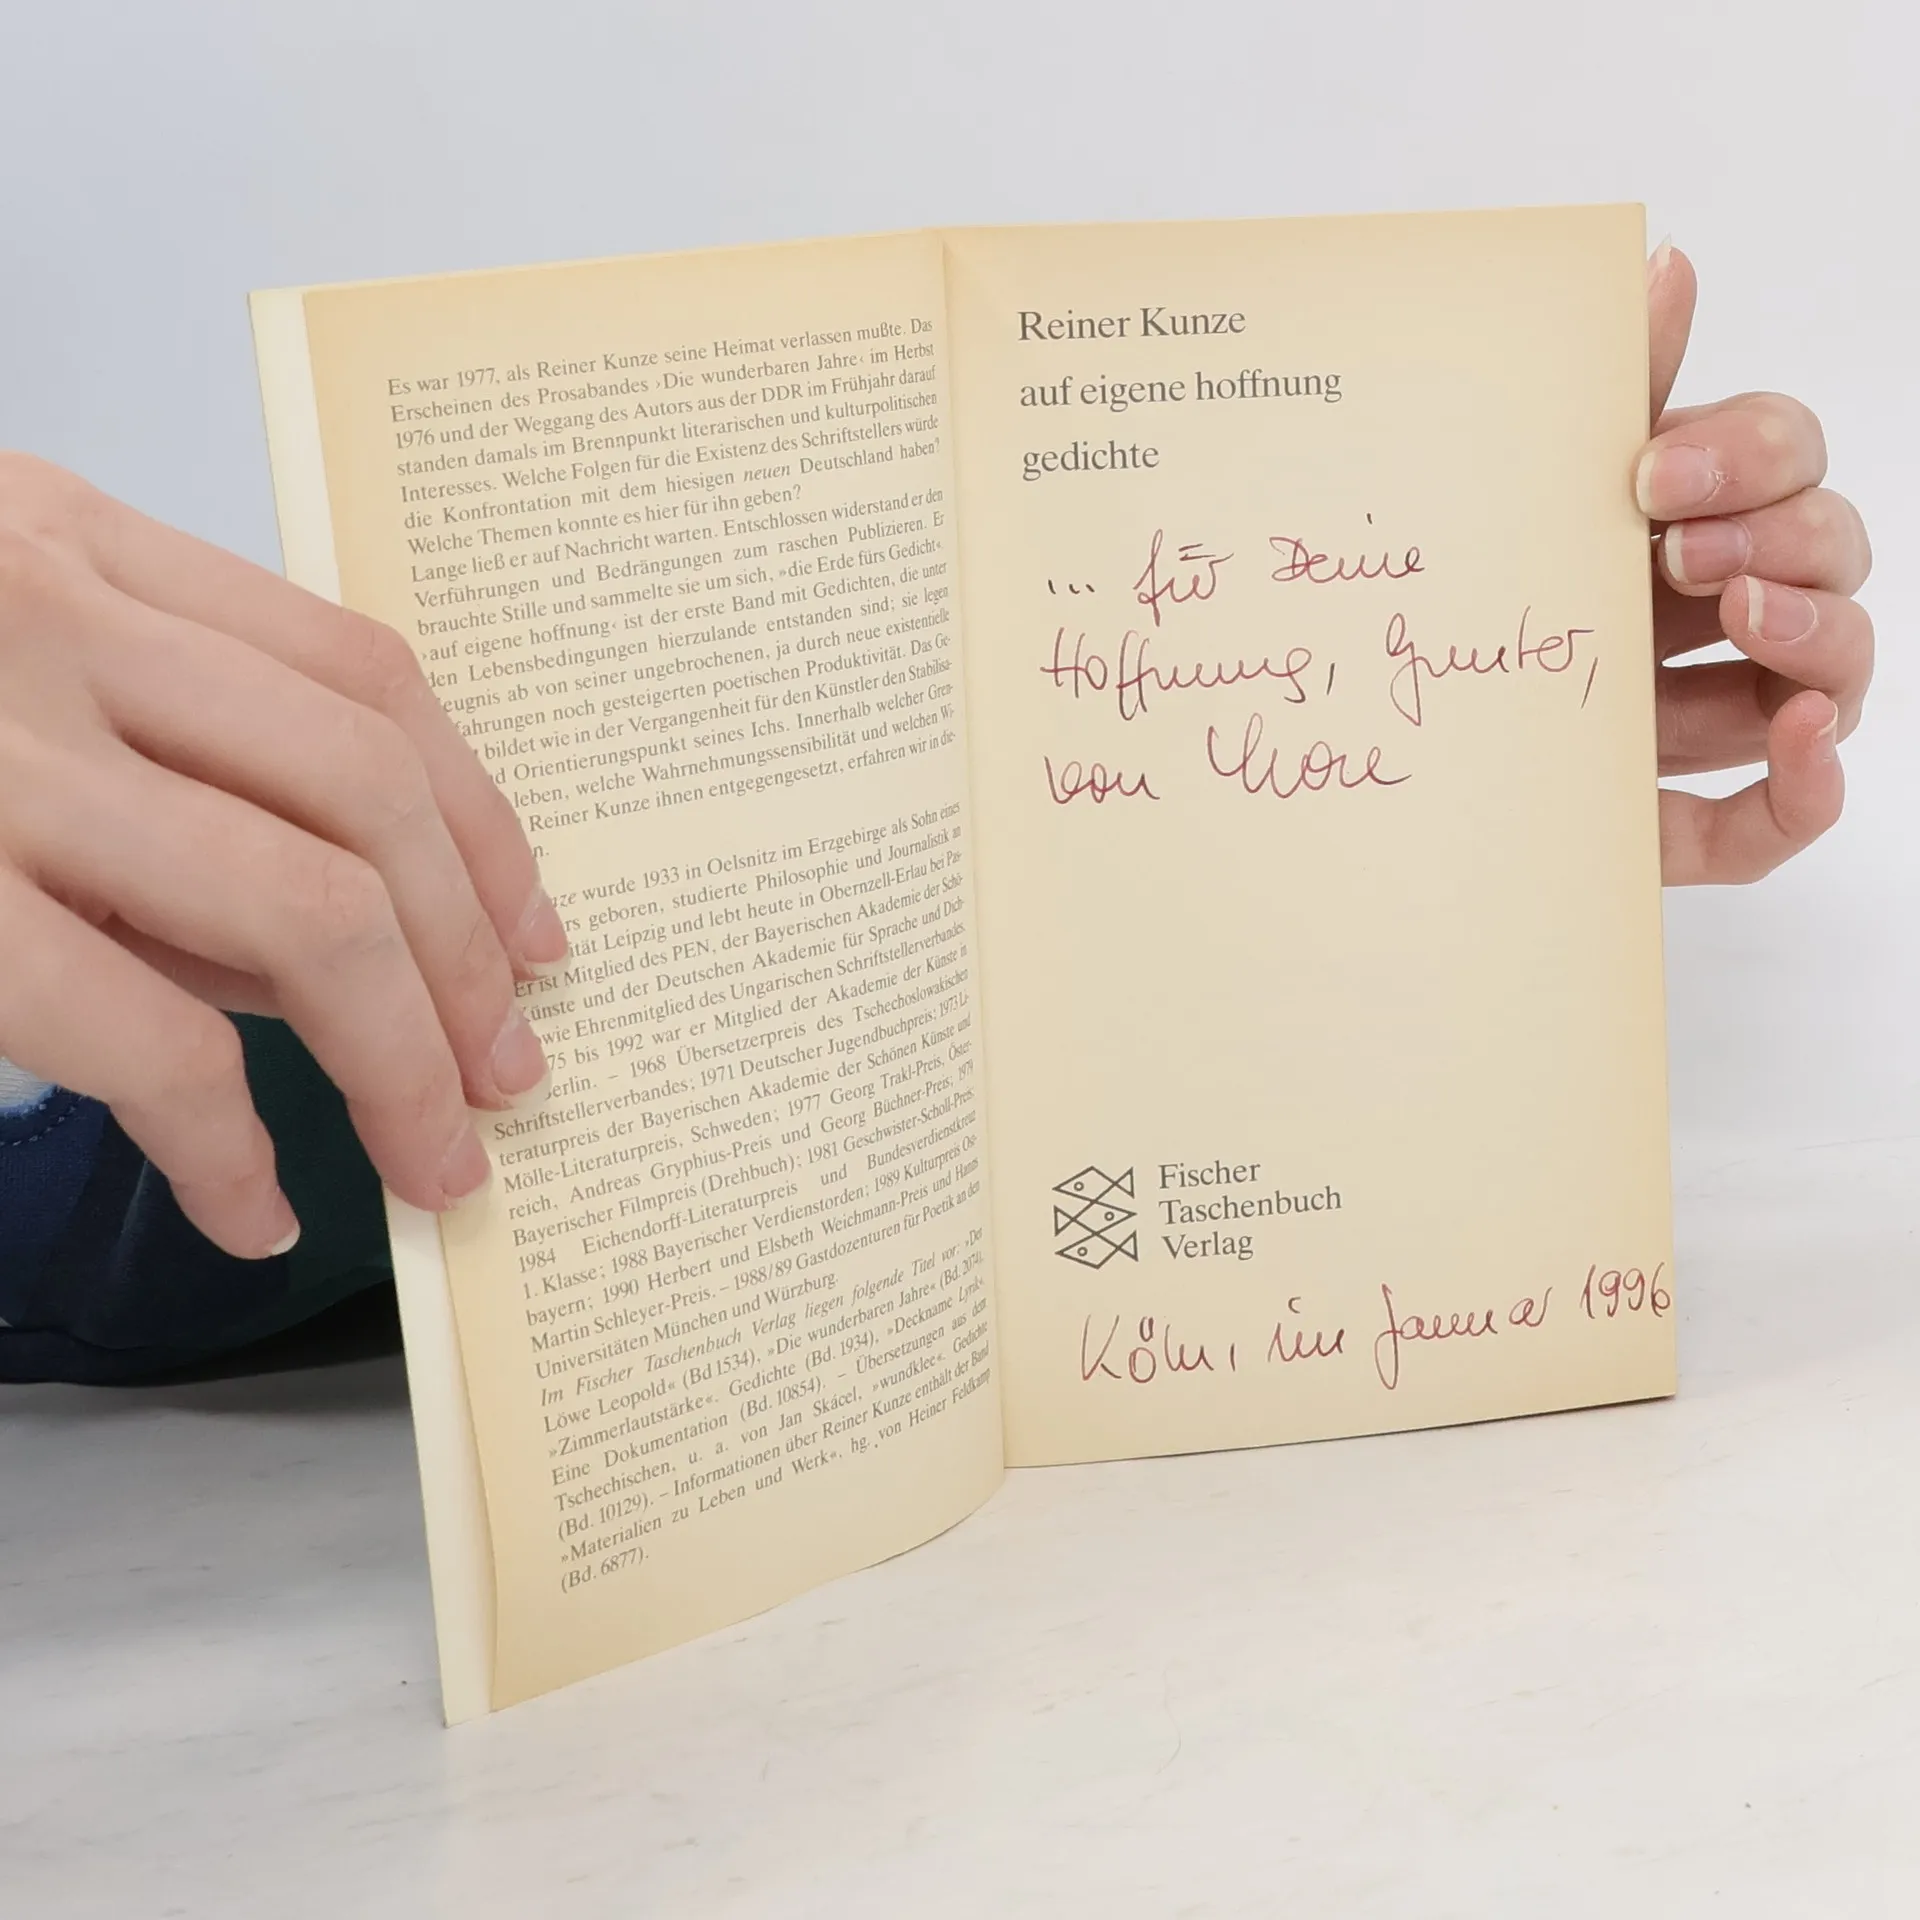 Es war 1977, als Reiner Kunze seine Heimat verlassen mußte. Das
Erscheinen des Prosabandes ›Die wunderbaren Jahre‹ im Herbst
1976 und der Weggang des Autors aus der DDR im Frühjahr darauf
standen damals im Brennpunkt literarischen und kulturpolitischen
Interesses. Welche Folgen für die Existenz des Schriftstellers würde
die Konfrontation mit dem hiesigen neuen Deutschland haben?
Welche Themen konnte es hier für ihn geben?
Lange ließ er auf Nachricht warten. Entschlossen widerstand er den
Verführungen und Bedrängungen zum raschen Publizieren. Er
brauchte Stille und sammelte sie um sich, »die Erde fürs Gedicht«.
›auf eigene hoffnung‹ ist der erste Band mit Gedichten, die unter
den Lebensbedingungen hierzulande entstanden sind; sie legen
eugnis ab von seiner ungebrochenen, ja durch neue existentielle
fahrungen noch gesteigerten poetischen Produktivität. Das Ge-
bildet wie in der Vergangenheit für den Künstler den Stabilisa-
d Orientierungspunkt seines Ichs. Innerhalb welcher Gren-
leben, welche Wahrnehmungssensibilität und welchen Wi-
Reiner Kunze ihnen entgegengesetzt, erfahren wir in die-
n.
ze wurde 1933 in Oelsnitz im Erzgebirge als Sohn eines
rs geboren, studierte Philosophie und Journalistik an
ität Leipzig und lebt heute in Obernzell-Erlau bei Pas-
Er ist Mitglied des PEN, der Bayerischen Akademie der Schö-
Künste und der Deutschen Akademie für Sprache und Dich-
owie Ehrenmitglied des Ungarischen Schriftstellerverbandes.
75 bis 1992 war er Mitglied der Akademie der Künste in
Berlin. – 1968 Übersetzerpreis des Tschechoslowakischen
Schriftstellerverbandes; 1971 Deutscher Jugendbuchpreis; 1973 Li-
teraturpreis der Bayerischen Akademie der Schönen Künste und
Mölle-Literaturpreis, Schweden; 1977 Georg Trakl-Preis, Öster-
reich, Andreas Gryphius-Preis und Georg Büchner-Preis; 1979
Bayerischer Filmpreis (Drehbuch); 1981 Geschwister-Scholl-Preis;
1984 Eichendorff-Literaturpreis und Bundesverdienstkreuz
1. Klasse; 1988 Bayerischer Verdienstorden; 1989 Kulturpreis Ost-
bayern; 1990 Herbert und Elsbeth Weichmann-Preis und Hanns
Martin Schleyer-Preis. – 1988/89 Gastdozenturen für Poetik an den
Universitäten München und Würzburg.
Im Fischer Taschenbuch Verlag liegen folgende Titel vor: »Der
Löwe Leopold« (Bd 1534), »Die wunderbaren Jahre« (Bd. 2074),
»Zimmerlautstärke«. Gedichte (Bd. 1934), »Deckname Lyrik«.
Eine Dokumentation (Bd. 10854). – Übersetzungen aus dem
Tschechischen, u. a. von Jan Skácel, »wundklee«. Gedichte
(Bd. 10129). – Informationen über Reiner Kunze enthält der Band
»Materialien zu Leben und Werk«, hg. von Heiner Feldkamp
(Bd. 6877).
Reiner Kunze
auf eigene hoffnung
gedichte
... für Deine
Hoffnung, Gunter,
von
Fischer
Taschenbuch
Verlag
Köln, im Januar 1996